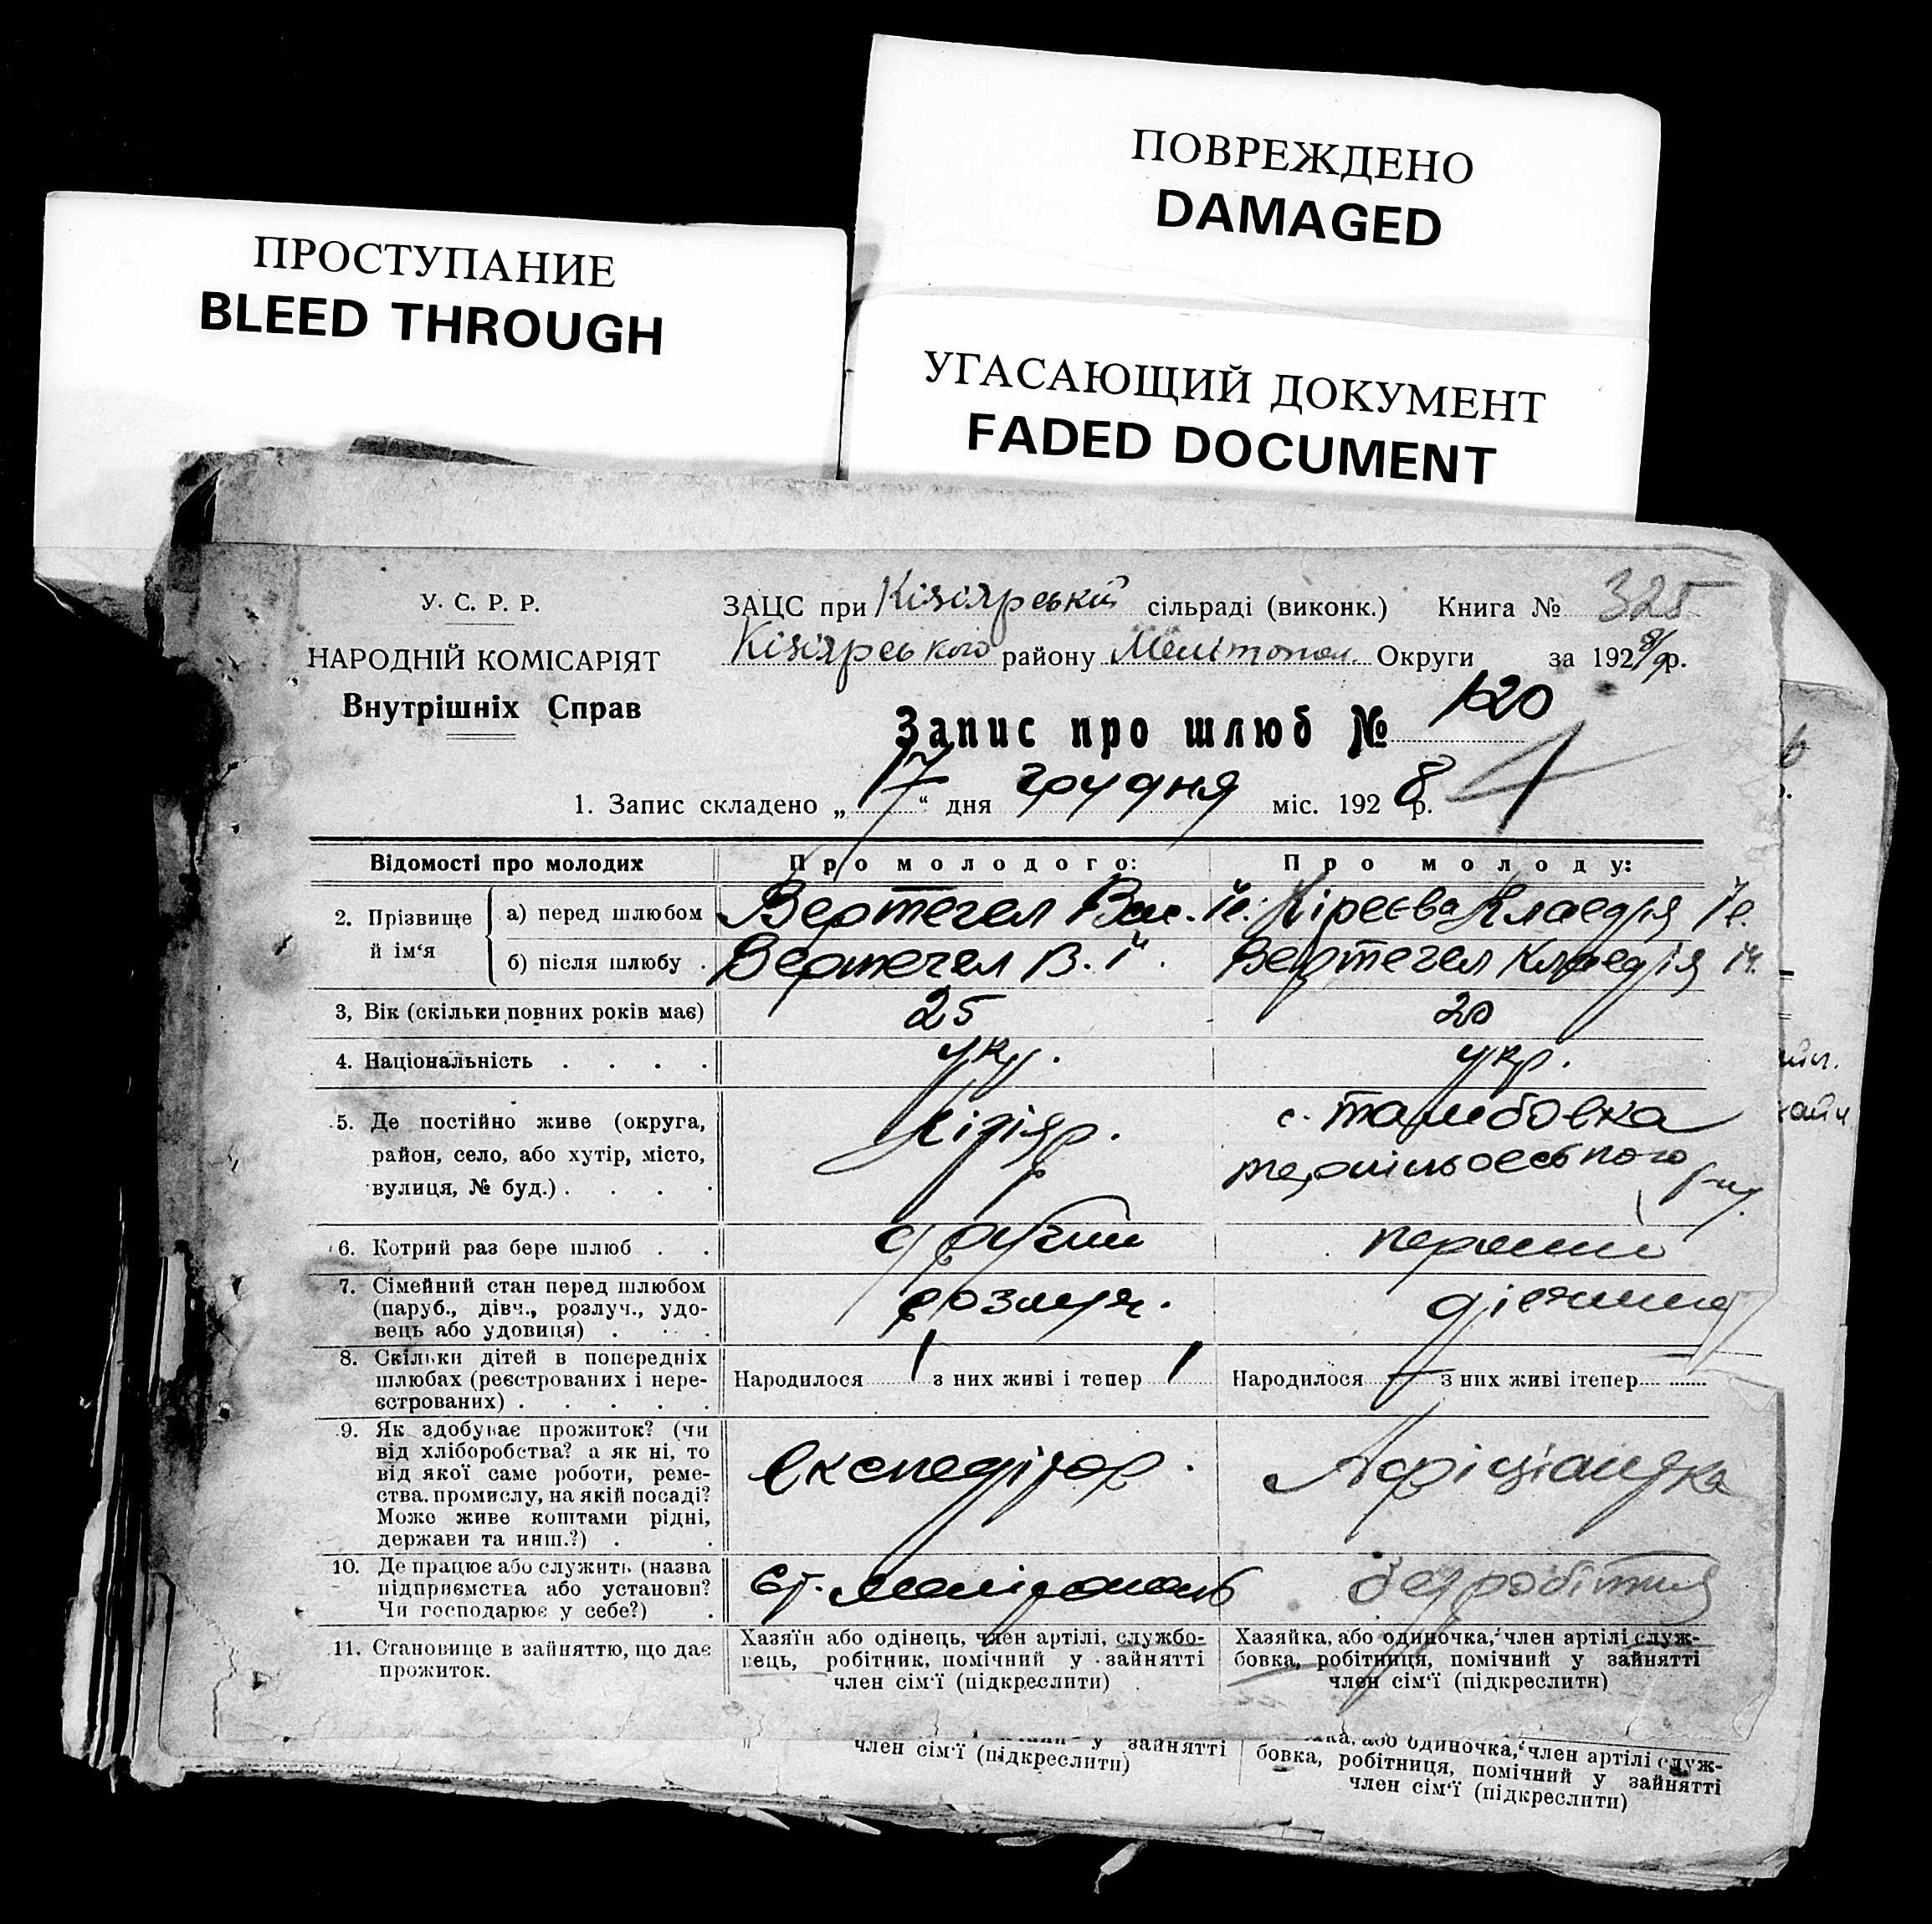 ПОВРЕЖДЕНО
DAMAGED
ПРОСТУПАНИЕ
BLEED THROUGH
УГАСАЮЩИЙ ДОКУМЕНТ
FADED DOCUMENT
У. С. Р. Р.
НАРОДНІЙ КОМІСАРІЯТ
Внутрішніх Справ
ЗАЦС при Кізіярській сільраді (виконк.) Книга № 325
Кізіярського району Мелітопол. Округи за 1928/9р.
Запис про шлюб № 120
1. Запис складено „17“ дня грудня міс. 1928 р.
Відомості про молодих Про молодого: Про молоду:
2. Прізвище й ім'я
а) перед шлюбом Вертегел Вас. Й. Кіреєва Клавдія Й.
б) після шлюбу . Вертегел В. Й. Вертегел Клавдія Й.
3, Вік (скільки повних років має) 25 20
4. Національність . . . . укр. укр.
5. Де постійно живе (округа,
район, село, або хутір, місто,
вулиця, № буд.) . . . .
Кізіяр.
с. Тамбовка
р-ну.
6. Котрий раз бере шлюб . . другий перший
7. Сімейний стан перед шлюбом
(паруб., дівч., розлуч., удо-
вець або удовиця) . . . .
розлуч. дівчина
8. Скільки дітей в попередніх
шлюбах (реєстрованих і нере-
єстрованих) . . . . .
Народилося 1 з них живі і тепер 1
Народилося — з них живі ітепер
9. Як здобуває прожиток? (чи
від хліборобства? а як ні, то
від якої саме роботи, реме-
ства. промислу, на якій посаді?
Може живе коштами рідні,
держави та инш.?) . .
експедітор. Афіціантка
10. Де працює або служить (назва
підприємства або установи?
Чи господарює у себе?) .
ст. Мелітополь безробітня
11. Становище в зайняттю, що дає
прожиток.
Хазяїн або одінець, член артілі, службо-
вець, робітник, помічний у зайнятті
член сім'ї (підкреслити)
Хазяйка, або одиночка, член артілі служ-
бовка, робітниця, помічний у зайнятті
член сім'ї (підкреслити)
у зайнятті
член сім'ї (підкреслити)
або одиночка, член артілі служ-
бовка, робітниця, помічний у зайнятті
член сім'ї (підкреслити)